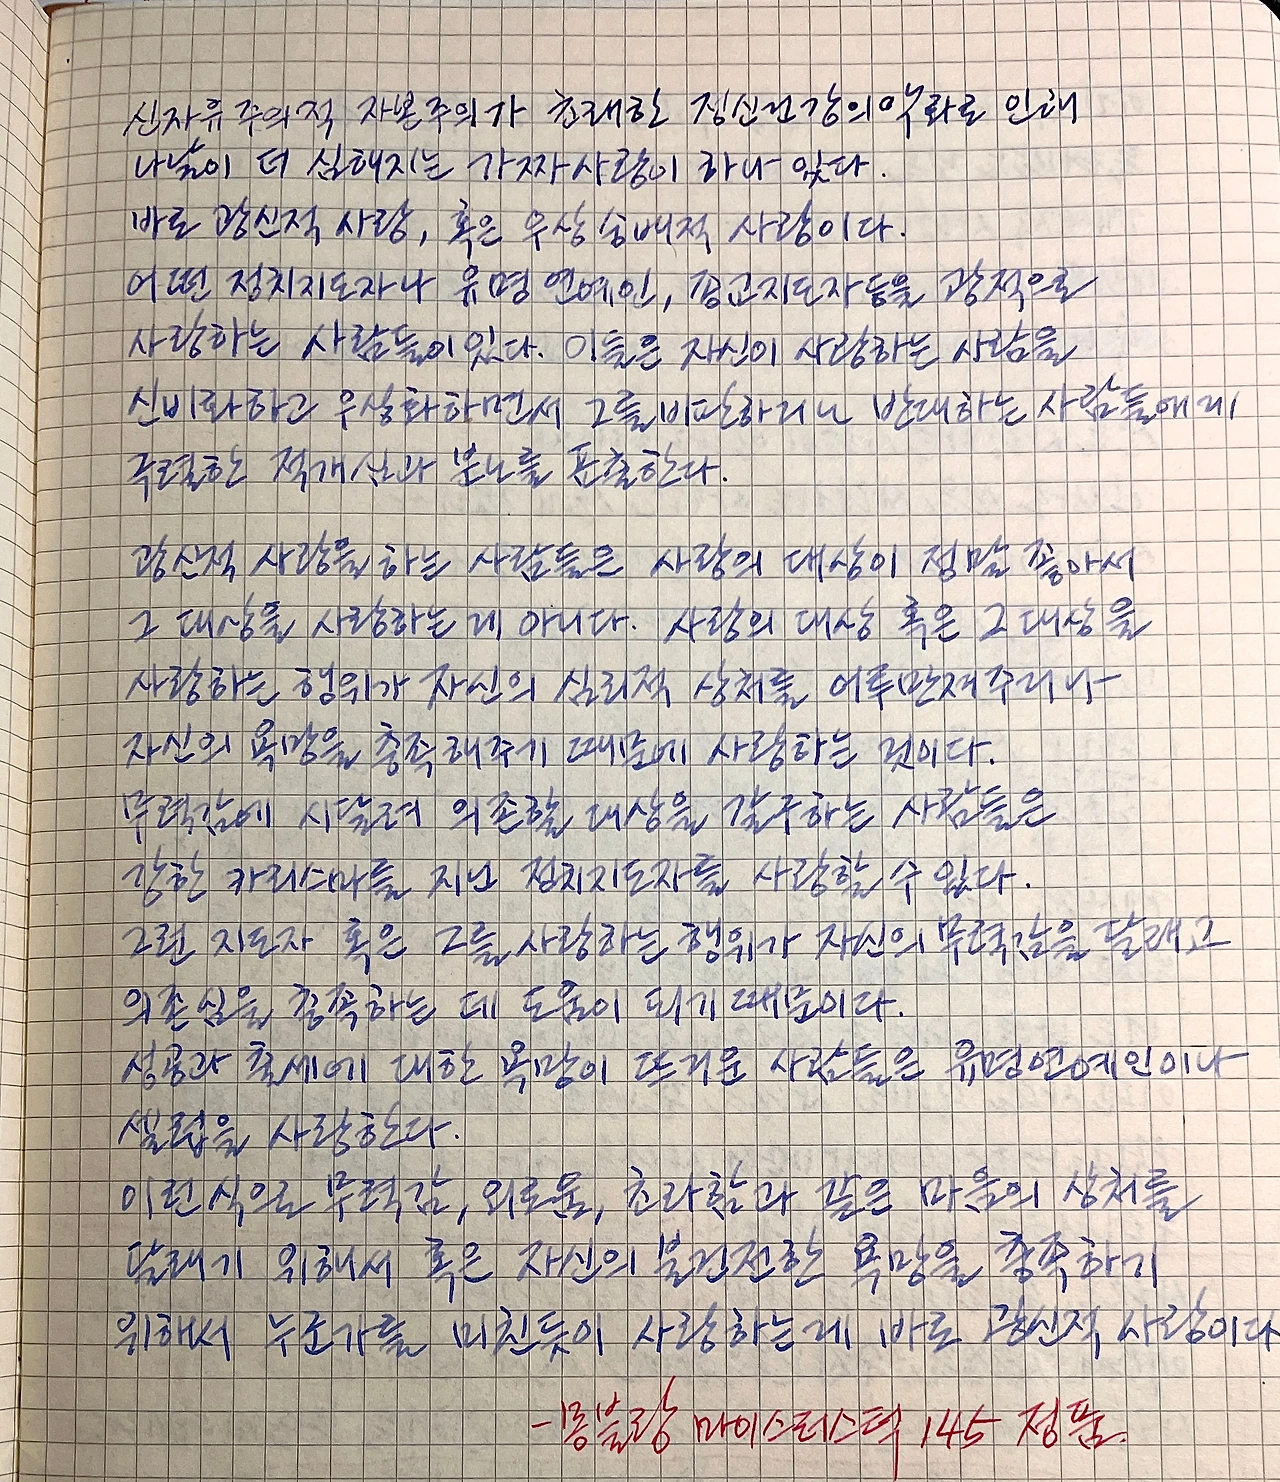 신자유주의적 자본주의가 초래한 정신건강의 악화로 인해
나날이 더 심해지는 가짜사랑이 하나 있다.
바로 광신적 사랑, 혹은 우상숭배적 사랑이다.
어떤 정치지도자나 유명 연예인, 종교지도자 등을 광적으로
사랑하는 사람들이 있다. 이들은 자신이 사랑하는 사람을
신비화하고 우상화하면서 그를 비판하거나 반대하는 사람들에게
극렬한 적개심과 분노를 표출한다.
광신적 사랑을 하는 사람들은 사랑의 대상이 정말 좋아서
그 대상을 사랑하는 게 아니다. 사랑의 대상 혹은 그 대상을
사랑하는 행위가 자신의 심리적 상처를 어루만져주거나
자신의 욕망을 충족해주기 때문에 사랑하는 것이다.
무력감에 시달려 의존할 대상을 갈구하는 사람들은
강한 카리스마를 지닌 정치지도자를 사랑할 수 있다.
그런 지도자 혹은 그를 사랑하는 행위가 자신의 무력감을 달래고
의존심을 충족하는 데 도움이 되기 때문이다.
성공과 출세에 대한 욕망이 뜨거운 사람들은 유명연예인이나
셀럽을 사랑한다.
이런 식으로 무력감, 외로움, 초라함과 같은 마음의 상처를
달래기 위해서 혹은 자신의 불건전한 욕망을 충족하기
위해서 누군가를 미친듯이 사랑하는게 바로 광신적 사랑이다
-몽블랑 마이스터스턱 145 정품.